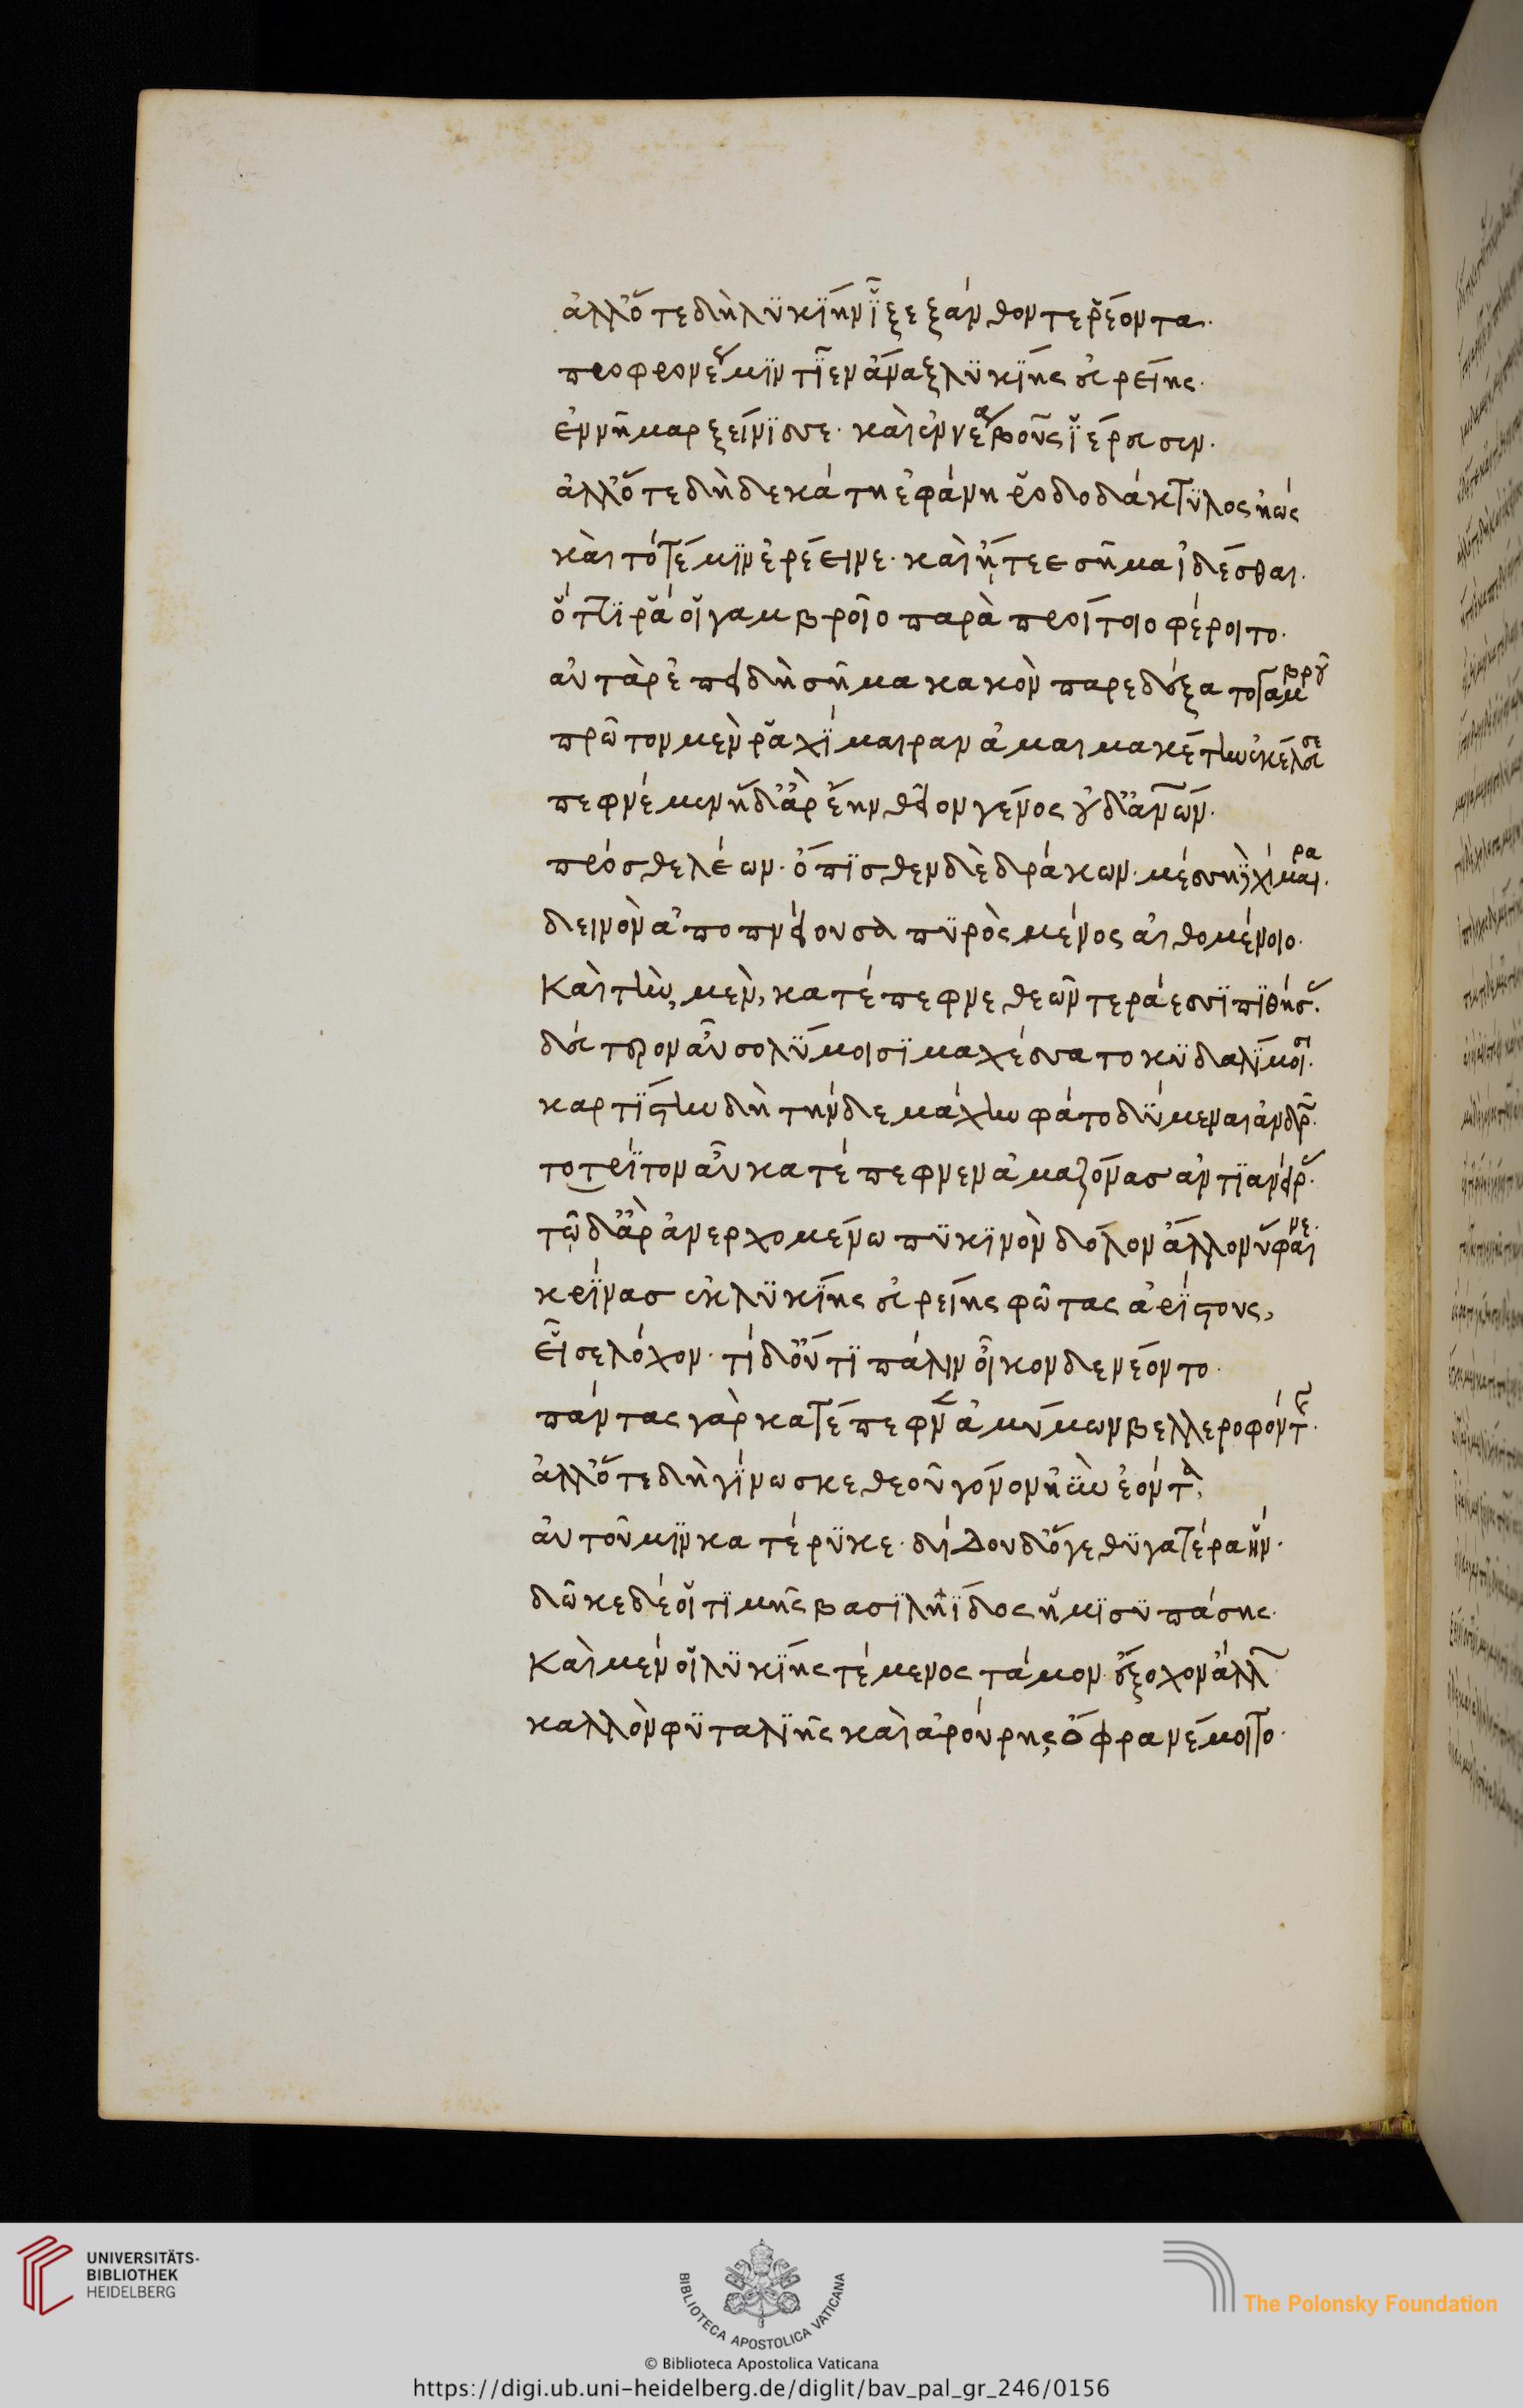 ἀλλ' ὅτε δὴ λυκίην ἷξε ξάνθόν τε ῥέοντα.
προφρονέως μιν τῖεν ἄναξ λυκίης εὐρείης.
ἐννῆμαρ ξείνισσε· καὶ ἐννέα βοῦς ἱέρευσεν.
ἀλλ' ὅτε δὴ δεκάτη ἐφάνη ῥοδοδάκτυλος ἠώς
καὶ τότέ μιν ἐρέεινε· καὶ ᾔτεε σῆμα ἰδέσθαι.
ὅττί ῥά οἱ γαμβροῖο παρὰ προίτοιο φέροιτο.
αὐτὰρ ἐπειδὴ σῆμα κακὸν παρεδέξατο γαμβροῦ
πρῶτον μὲν ῥα χίμαιραν ἀμαιμακέτην ἐκέλευσε
πεφνέμεν ἡ δ' ἀρ' ἔην θεῖον γένος οὐδ' ἀνθρώπων.
πρόσθε λέων· ὄπισθεν δὲ δράκων· μέσση δὲ χίμαιρα.
δεινὸν ἀποπνείουσα πυρὸς μένος αἰθομένοιο.
Καὶ τὴν μὲν, κατέπεφνε θεῶν τεράεσσι πιθήσας.
δεύτερον αὖ σολύμοισι μαχέσσατο κυδαλίμοισι.
καρτίστην δὴ τήνδε μάχην φάτο δύμεναι ἀνδρῶν.
τοτρίτον αὖ κατέπεφνεν ἀμαζόνας ἀντιανείρας.
τῷ δ' ἀρ' ἀνερχομένω πυκινὸν δόλον ἄλλον ὕφαινε.
κρίνας ἐκ λυκίης εὐρείης φῶτας ἀρίστους,
εἷσε λόχον· τί δ' οὔτι πάλιν οἶκον δε νέοντο.
πάντας γὰρ κατέπεφνεν ἀμύμων βελλεροφόντης.
ἀλλ' ὅτε δὴ γίνωσκε θεοῦ γόνον ἠῢν ἐόντα,
αὐτοῦ μιν κατέρυκε· δίδου δ' ὅγε θυγατέρα ἥν.
δῶκε δέ οἱ τιμῆς βασιληΐδος ἥμισυ πάσης.
Καὶ μέν οἱ λυκίης τέμενος τάμον. ἔξοχον ἄλλων
καλλὸν φυταλιῆς καὶ ἀρούρης, ὄφρα νέμοιτο.
UNIVERSITÄTS-
BIBLIOTHEK
HEIDELBERG
BIBLIOTECA APOSTOLICA VATICANA
The Polonsky Foundation
© Biblioteca Apostolica Vaticana
https://digi.ub.uni-heidelberg.de/diglit/bav_pal_gr_246/0156